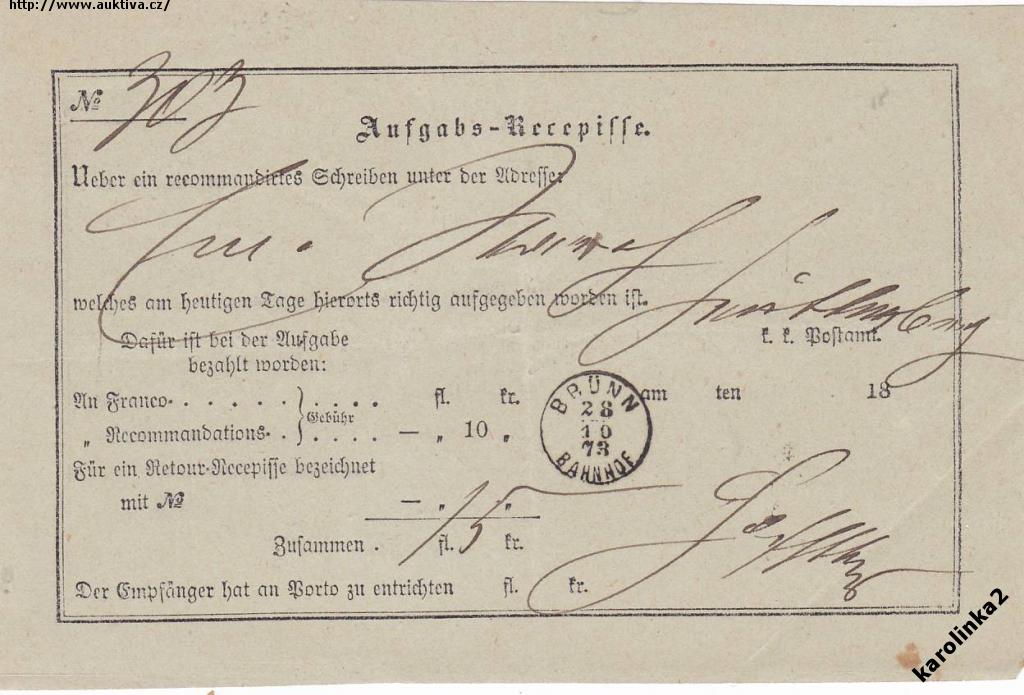 http://www.auktiva.cz/
№ 303
Aufgabs-Recepisse.
Ueber ein recommandirtes Schreiben unter der Adresse:
welches am heutigen Tage hierorts richtig aufgegeben worden ist.
Dafür ist bei der Aufgabe
bezahlt worden:
k. k. Postamt.
An Franco. . . . . . . . . . fl. kr.
Gebühr
„ Recommandations. . . . . . — „ 10 „
am ten 18
BRÜNN
28
10
73
BAHNHOF
Für ein Retour-Recepisse bezeichnet
mit № — „ „
Zusammen . fl. 15 kr.
Der Empfänger hat an Porto zu entrichten fl. kr.
karolinka2